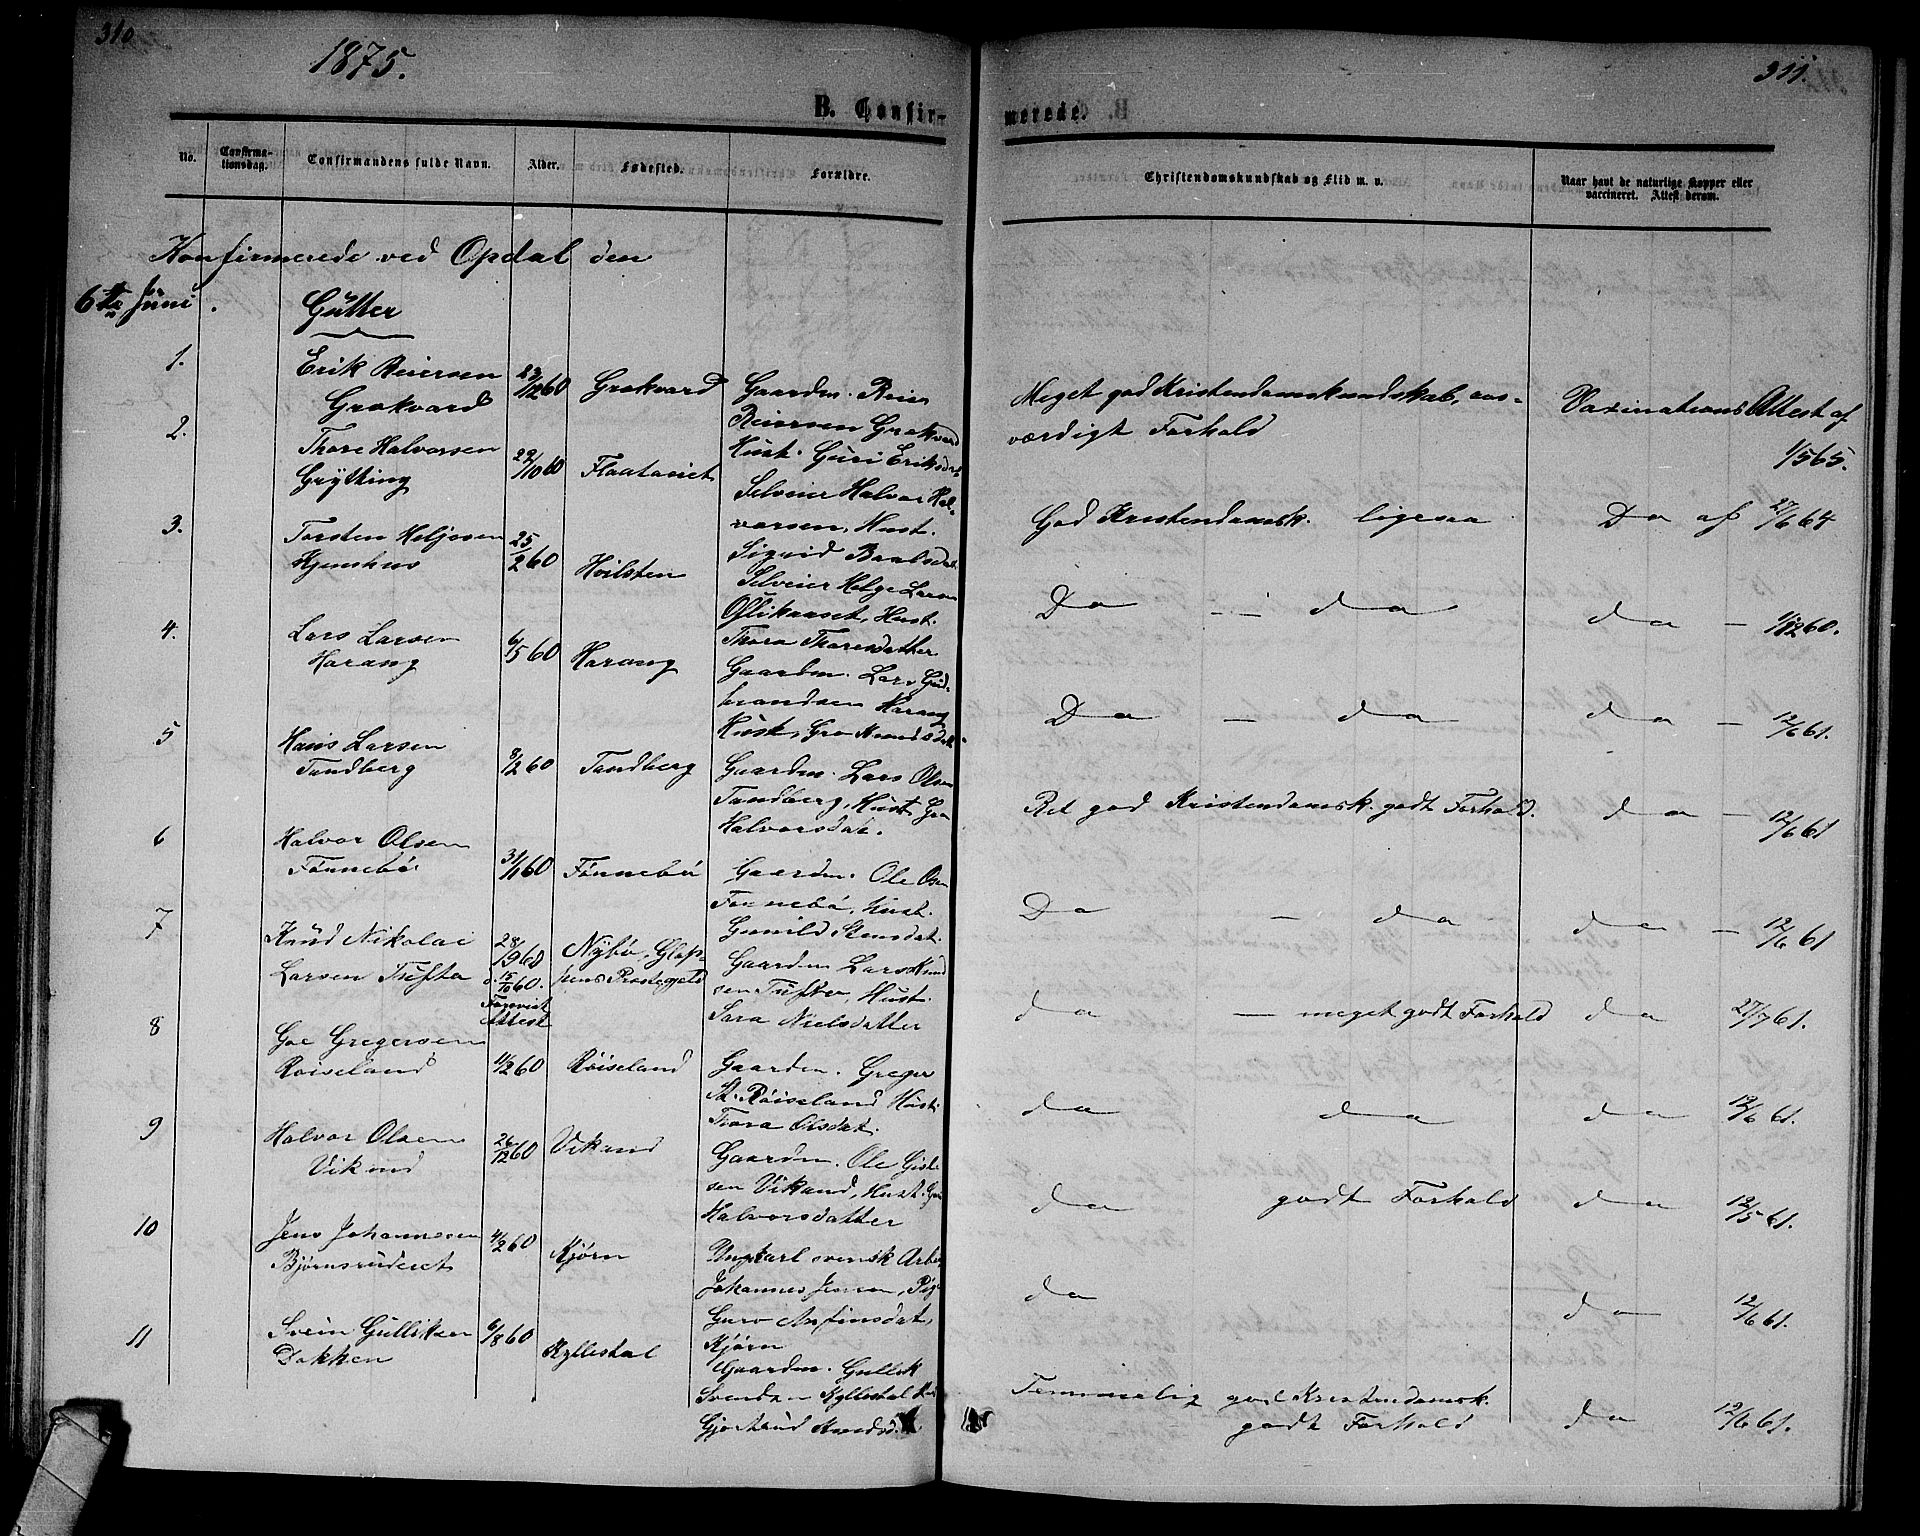 310
1875.
311.
B. Confir-
merede.
No.
Confirma-
tionsdag.
Confirmandens fulde Navn.
Alder.
Fødested.
Forældre.
Christendomskundskab og Flid m. v.
Naar havt de naturlige Kopper eller
vaccineret. Attest derom.
Konfirmerede ved Opdal den
6te Juni.
Gutter
1.
Erik Reiersen
Grøkvard
23/12 60
Grøkvard
Gaardm. Reier
Reiersen Grøkvard
Hust. Guri Eriksdat
Meget god Kristendomskundskab, ros-
værdigt Forhold
Vaxinations Attest af
1/5 65.
2.
Thore Halvorsen
Grytting
29/10 60
Flaataviet
Selveier Halvor Hal-
vorsen, Hust.
Sigrid
God Kristendomsk. ligesaa
Do af 27/6 64
3.
Torsten Heljesen
Kjemhus
25/2 60
Hvilsten
Selveier Helge Larsen
Hust.
Thora Thoresdatter
Do - da
da - 1/12 60.
4.
Lars Larsen
Harang
6/5 60
Harang
Gaardm. Lars Gud-
brandsen Harang
Hust. Gro
Do - da
da - 12/6 61.
5
Hans Larsen
Tandberg
8/2 60
Tandberg
Gaardm. Lars Olsen
Tandberg, Hust. Gro
Halvorsdat.
Ret god Kristendomsk. godt Forhold.
da - 12/6 61
6
Halvor Olsen
Fønnebø
31/1 60
Fønnebø
Gaardm. Ole Osen
Fønnebø, Hust.
Gunild Stensdat.
Do - da
da - 12/6 61
7
Knud Nikolai
Larsen Tufto
28/9 60
d. 15/10 60.
Forevist
Attest
Nybø, Glop-
pens Præstegjeld
Gaardm Lars Knud
sen Hust.
Sara Nielsdatter
da - meget godt Forhold
da 27/7 61.
8
Goe Gregersen
Røiseland
11/2 60
Røiseland
Gaardm. Greger
Røiseland Hust.
Thora Olsdat.
da da
da 12/6 61.
9
Halvor Olsen
Vikand
26/12 60
Vikand
Gaardm. Ole
sen Vikand, Hust.
Halvorsdatter
da godt Forhold
da 12/5 61.
10
Jens Johannesen
Bjørnsruderet
4/2 60
Kjørn
Ungkarl svensk Arbei
Johannes Jensen, Pig
Guro Anfinsdat,
Kjørn
da
da 12/6 61.
11
Svein Gulliksen
Dokken
6/8 60
Kyllestal
Gaardm. Gullik
Svendsen Kyllestal
Gjertrud
Temmelig god Kristendomsk.
godt Forhold
da 12/6 61.